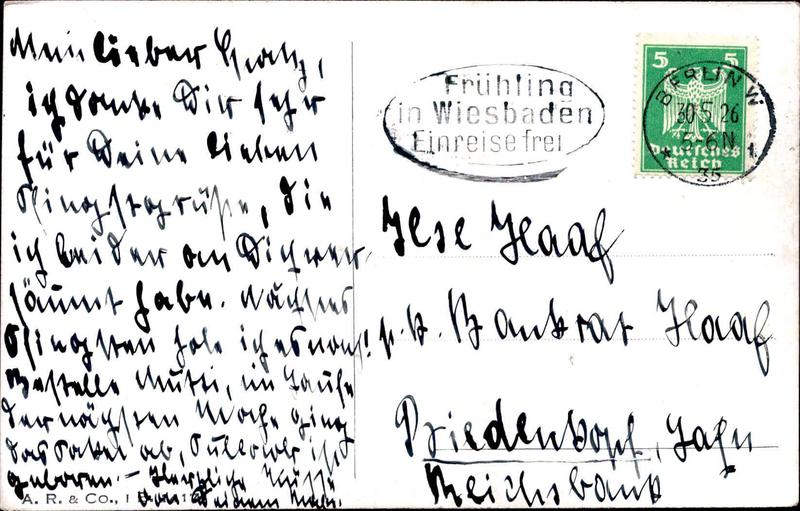 Mein lieber Schatz,
ich danke Dir sehr
für Deine lieben
Pfingstgrüße, die
ich leider an Dich ver-
säumt habe. Nächstes
Pfingsten hole ich es nach!
Bestelle Mutti, im Laufe
der nächsten Woche ging
das Paket ab,
geboren. – Herzliche Küsse
von Deinem
A. R. & Co.,
Frühling
in Wiesbaden
Einreise frei
5 5
Deutsches
Reich
BERLIN W
30.5.26
5-6N
* 1
35
Ilse Haaf
p. A. Bankrat Haaf
Biedenkopf, Lahn
Reichsbank